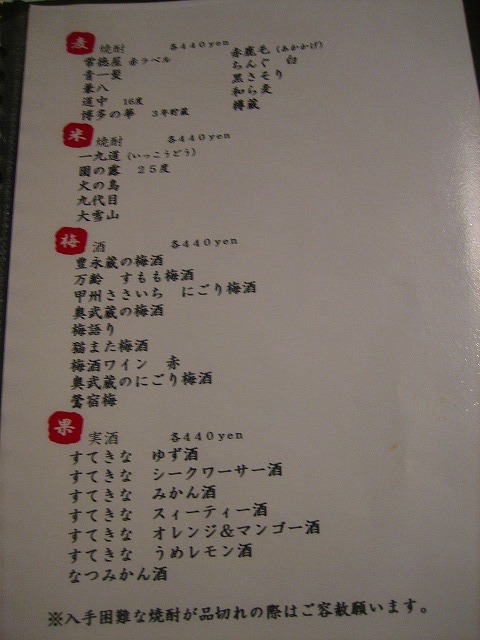 麦 焼酎 各440yen
常徳屋 赤ラベル
青一髪
兼八
道中 16度
博多の華 3年貯蔵
赤鹿毛(あかかげ)
ちんぐ 白
黒さそり
和ら麦
樽蔵
米 焼酎 各440yen
一九道(いっこうどう)
園の露 25度
火の鳥
九代目
大雪山
梅 酒 各440yen
豊永蔵の梅酒
万齢 すもも梅酒
甲州ささいち にごり梅酒
奥武蔵の梅酒
梅語り
猫また梅酒
梅酒ワイン 赤
奥武蔵のにごり梅酒
鶯宿梅
果 実酒 各440yen
すてきな ゆず酒
すてきな シークワーサー酒
すてきな みかん酒
すてきな スィーティー酒
すてきな オレンジ&マンゴー酒
すてきな うめレモン酒
なつみかん酒
※入手困難な焼酎が品切れの際はご容赦願います。